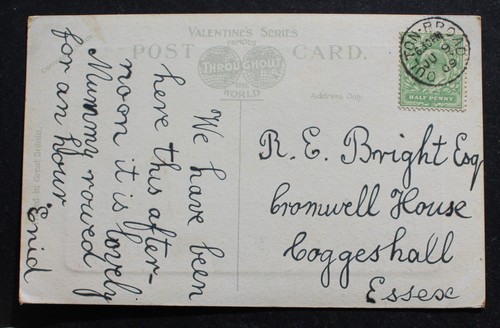 VALENTINE'S SERIES
POST CARD.
FAMOUS
THROUGHOUT
THE
WORLD
Address Only
HALF PENNY
OULTON-BROAD
We have been
here this after-
noon it is lovely
Mummy rowed
for an hour
Enid
R. E. Bright Esq
Cromwell House
Coggeshall
Essex